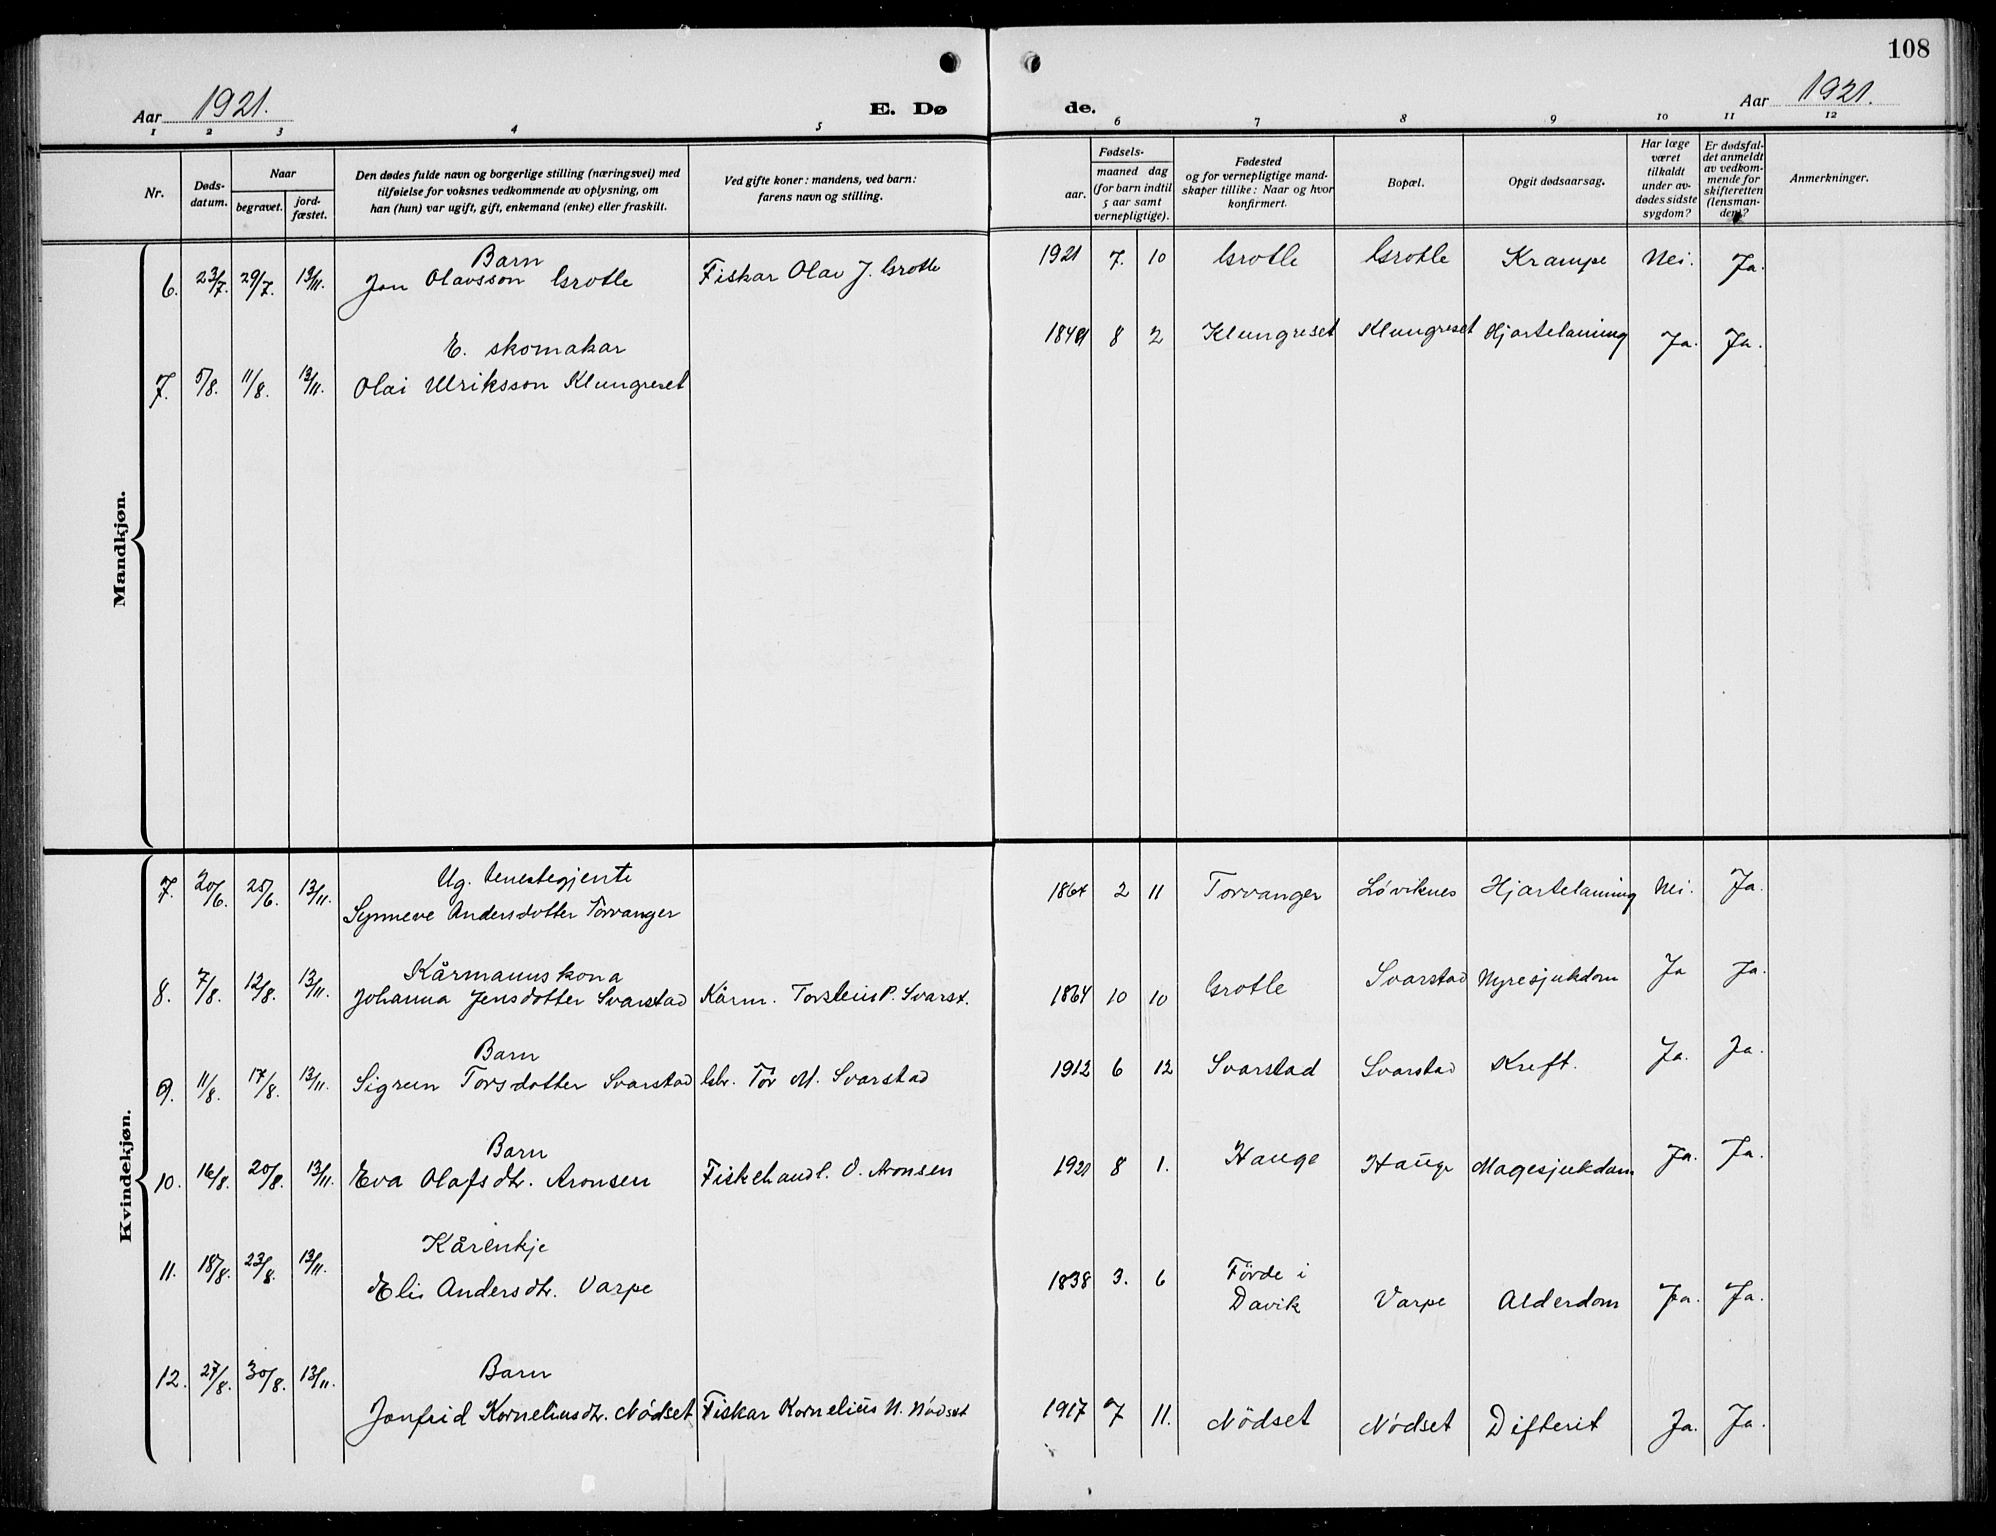 108
Aar 1921.
E. Dø de.
Aar 1921.
1 2 3 4 5 6 7 8 9 10 11 12
Nr.
Døds-
datum.
Naar
begravet.
jord-
fæstet.
Den dødes fulde navn og borgerlige stilling (næringsvei) med
tilføielse for voksnes vedkommende av oplysning, om
han (hun) var ugift, gift, enkemand (enke) eller fraskilt.
Ved gifte koner: mandens, ved barn:
farens navn og stilling.
Fødsels-
aar.
maaned dag
(for barn indtil
5 aar samt
vernepligtige).
Fødested
og for vernepligtige mand-
skaper tillike: Naar og hvor
konfirmert.
Bopæl.
Opgit dødsaarsag.
Har læge
været
tilkaldt
under av-
dødes sidste
sygdom?
Er dødsfal-
det anmeldt
av vedkom-
mende for
skifteretten
(lensman-
den)?
Anmerkninger.
Mandkjøn.
Barn
6. 23/7. 29/7. 13/11. Jon Olavsson Grotle Fiskar Olav J. Grotle 1921 7. 10 Grotle Grotle Krampe Nei. Ja.
E. skomakar
7. 5/8. 11/8. 13/11. Olai Ulriksson Klungreset 8 2 Klungreset Klungreset Hjartelaming Ja. Ja.
Kvindekjøn.
Ug. tenestegjente
7. 20/6. 25/6. 13/11. Synneve Andersdotter Torvanger 1864 2 11 Torvanger Løviknes Hjartelaming Nei. Ja.
Kårmannskona
8. 7/8. 12/8. 13/11. Johanna Jensdotter Svarstad Kårm. Torstein P. Svarst. 1864 10 10 Grotle Svarstad Nyresjukdom Ja Ja.
Barn
9. 11/8. 17/8. 13/11. Sigrun Torsdotter Svarstad Gbr. Tor M. Svarstad 1912 6 12 Svarstad Svarstad Kreft. Ja. Ja.
Barn
10. 16/8. 20/8. 13/11. Eva Olafsdtr. Aronsen Fiskehandl. O. Aronsen 1921 8 1. Hauge Hauge Magesjukdom Ja. Ja.
Kårenkje
11. 18/8. 23/8. 13/11. Elis Andersdtr. Varpe 1838 3. 6 Førde i
Davik Varpe Alderdom Ja. Ja.
Barn
12. 27/8. 30/8. 13/11. Jonfrid Korneliusdtr. Nødset Fiskar Kornelius N. Nødset 1917 7 11. Nødset Nødset Difterit Ja. Ja.